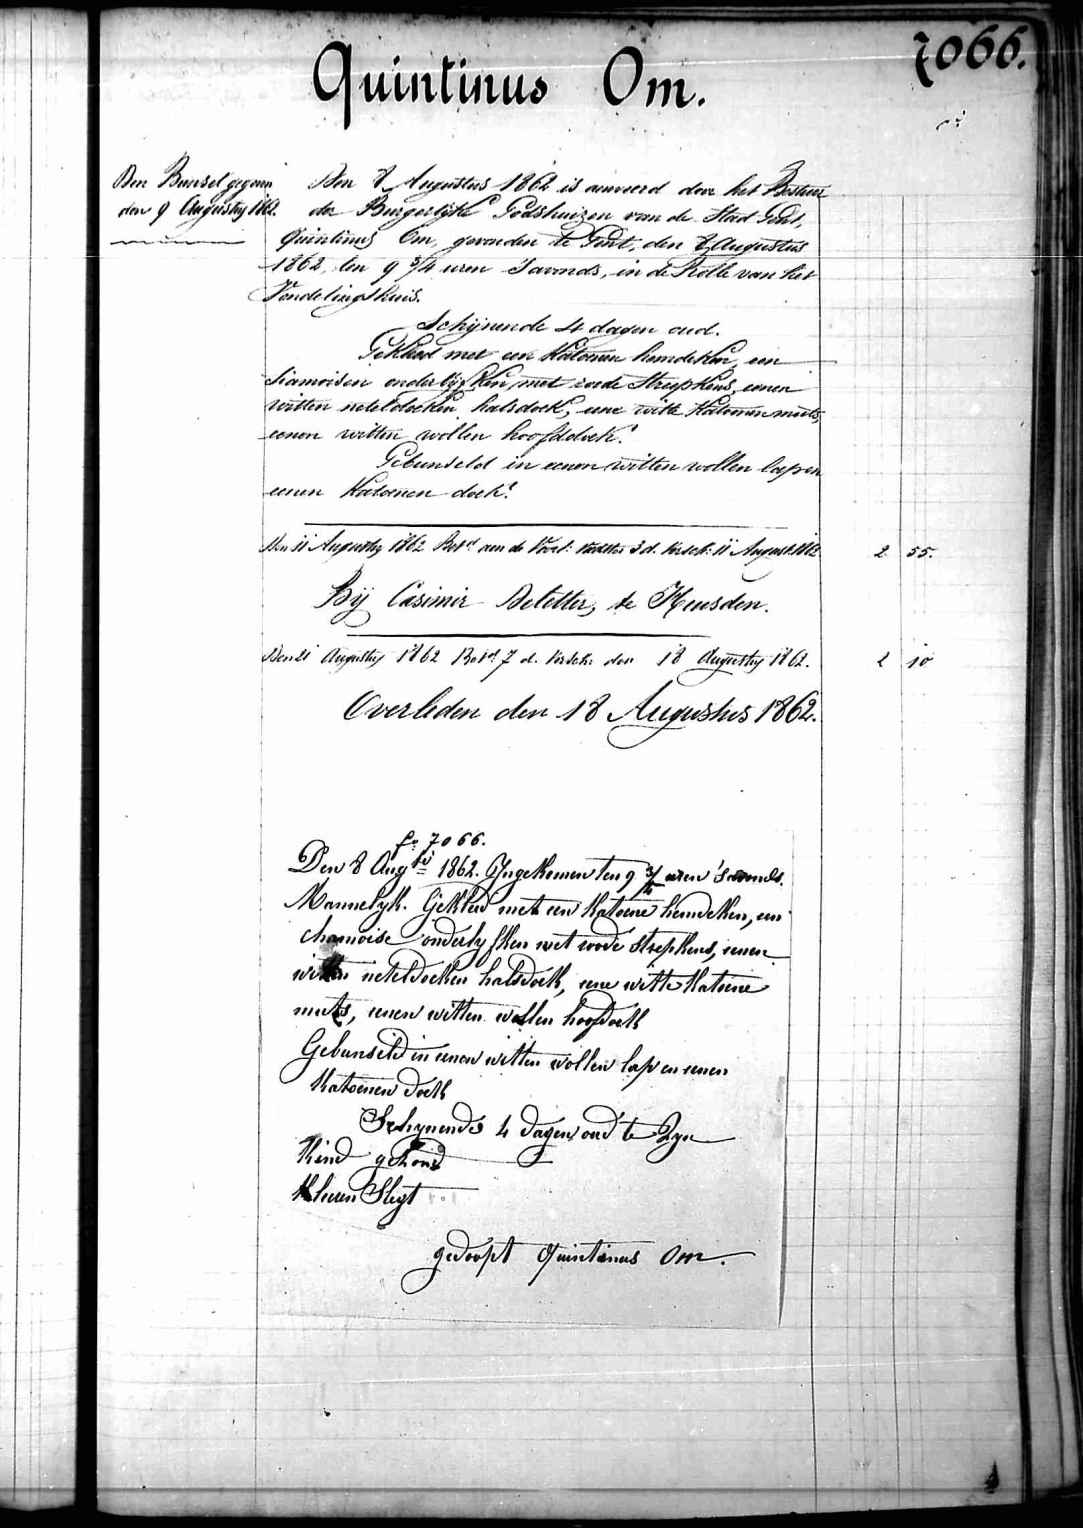 7066.
Quintinus Om.
Den Bunsel gegeven
den 9 Augusty 1862.
Den 8 Augustus 1862 is aenveerd door het Bestuur
der Burgerlijke Godshuizen van de Stad Gent,
Quintinus Om, gevonden te Gent, den 8 Augustus
1862, ten 9 3/4 uren 's avonds, in de Rolle van het
Vondelingshuis.
Schijnende 4 dagen oud.
Gekleed met een Katoenen hemdeken, een
siamoisen onderlijfken met roode Streepkens, eenen
witten neteldoeken halsdoek, eene witte Katoenen muts,
eenen witten wollen hoofddoek.
Gebunseld in eenen witten wollen lap en
eenen Katoenen doek.
Den 11 Augusty 1862 Betd aen de 3 d. versch: 11 August 1862 2 55.
Bij Casimir Detetter, te Heusden.
Den 21 Augusty 1862 Betd 7 d. versch: den 18 Augusty 1862. 2 10
Overleden den 18 Augustus 1862.
fo 7066.
Den 8 Augti 1862. Ingekomen ten 9 3/4 uren 's avonds.
Mannelyk. Gekleed met een Katoene hemdeken, een
chamoise onderlyfken met roode strepkens, eenen
witten neteldoeken halsdoek, eene witte Katoene
muts, eenen witten wollen hoofdoek
Gebunseld in eenen witten wollen lap en eenen
Katoenen doek
Schynende 4 dagen oud te Zyn
Kind gezond
Kleeren Slegt
gedoopt Quintinus Om.